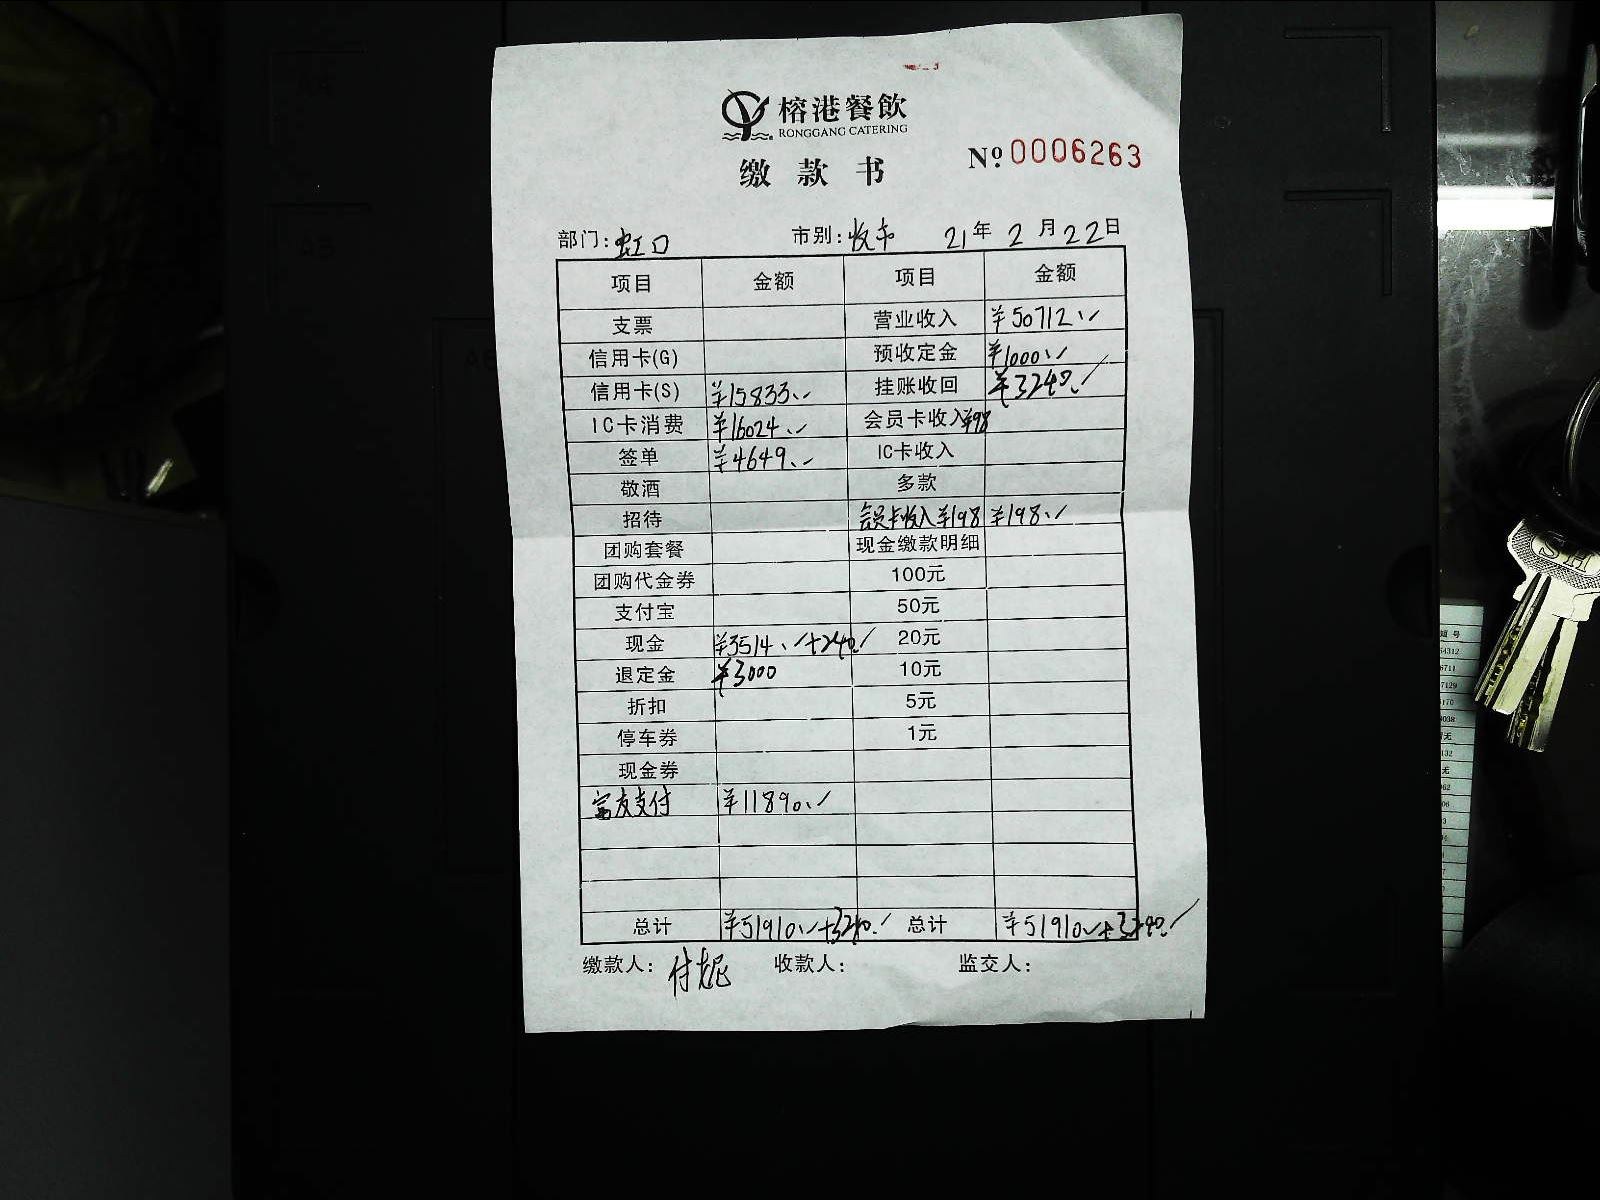 榕港餐飲
RONGGANG CATERING
缴款书
№ 0006263
部门: 虹口 市别: 收市 21年2月22日
项目 金额 项目 金额
支票 营业收入 ¥50712.
信用卡(G) 预收定金 ¥1000.
信用卡(S) ¥15833. 挂账收回 ¥3240.
IC卡消费 ¥16024. 会员卡收入¥98
签单 ¥4649. IC卡收入
敬酒 多款
招待 会员卡收入¥198 ¥198.
团购套餐 现金缴款明细
团购代金券 100元
支付宝 50元
现金 ¥3514.+240. 20元
退定金 ¥3000 10元
折扣 5元
停车券 1元
现金券
富友支付 ¥11890.
总计 ¥51910.+3240. 总计 ¥51910.+3240.
缴款人: 付妮 收款人: 监交人: